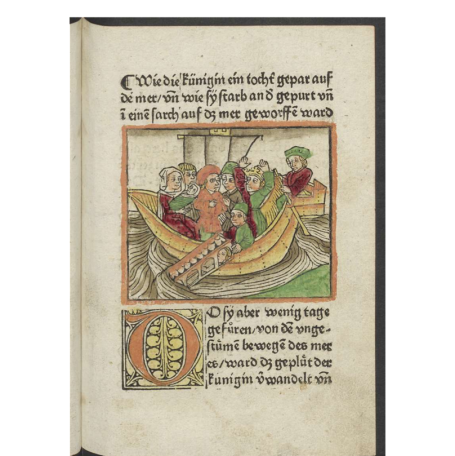 ¶ Wie die künigin ein tochť gepar auf
dē mer/vn̄ wie sÿ starb an ď gepurt vn̄
ī einē sarch auf dz mer geworffē ward
DO sÿ aber wenig tage
gefůren/von dē vnge-
stümē bewegē des mer
es/ward dz geplůt der
künigin v̄wandelt vn̄